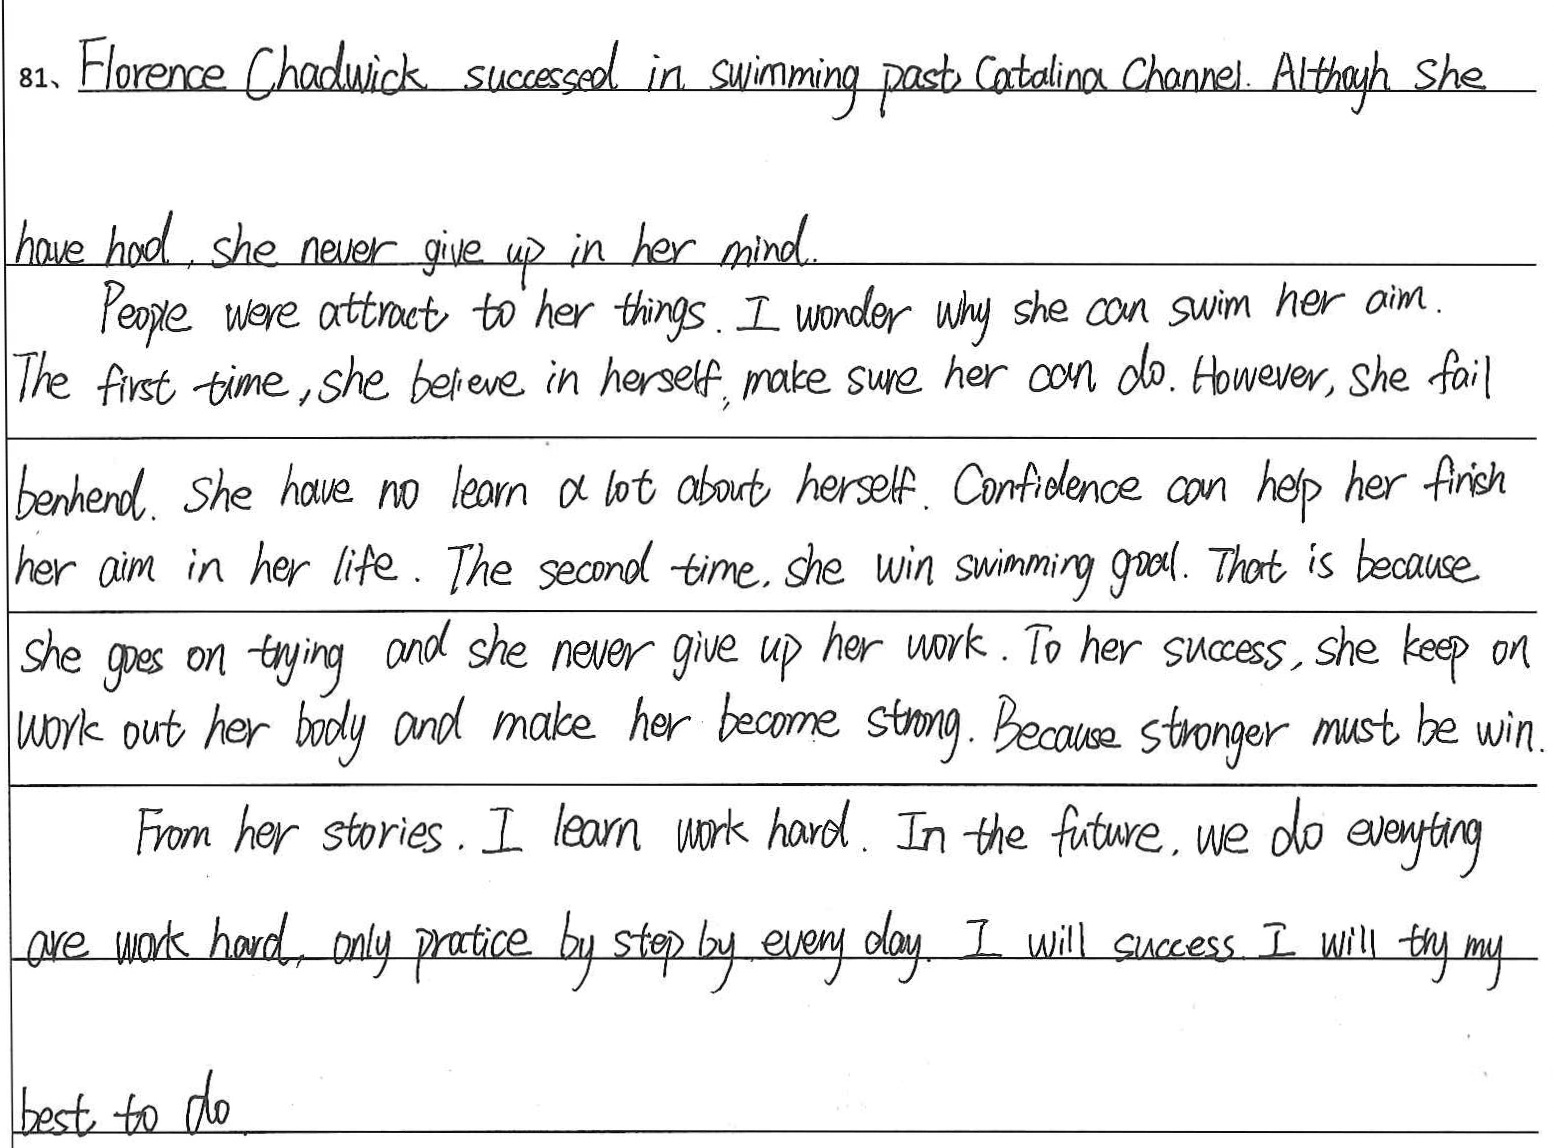 81、Florence Chadwick successed in swimming past Catalina Channel. Althoyh she
have had, she never give up in her mind.
People were attract to her things. I wonder why she can swim her aim.
The first time, she believe in herself, make sure her can do. However, she fail
benhend. She have no learn a lot about herself. Confidence can help her finish
her aim in her life. The second time, she win swimming goal. That is because
she goes on trying and she never give up her work. To her success, she keep on
work out her body and make her become strong. Because stronger must be win.
From her stories. I learn work hard. In the future, we do everyting
are work hard, only practice by step by every day. I will success I will try my
best to do